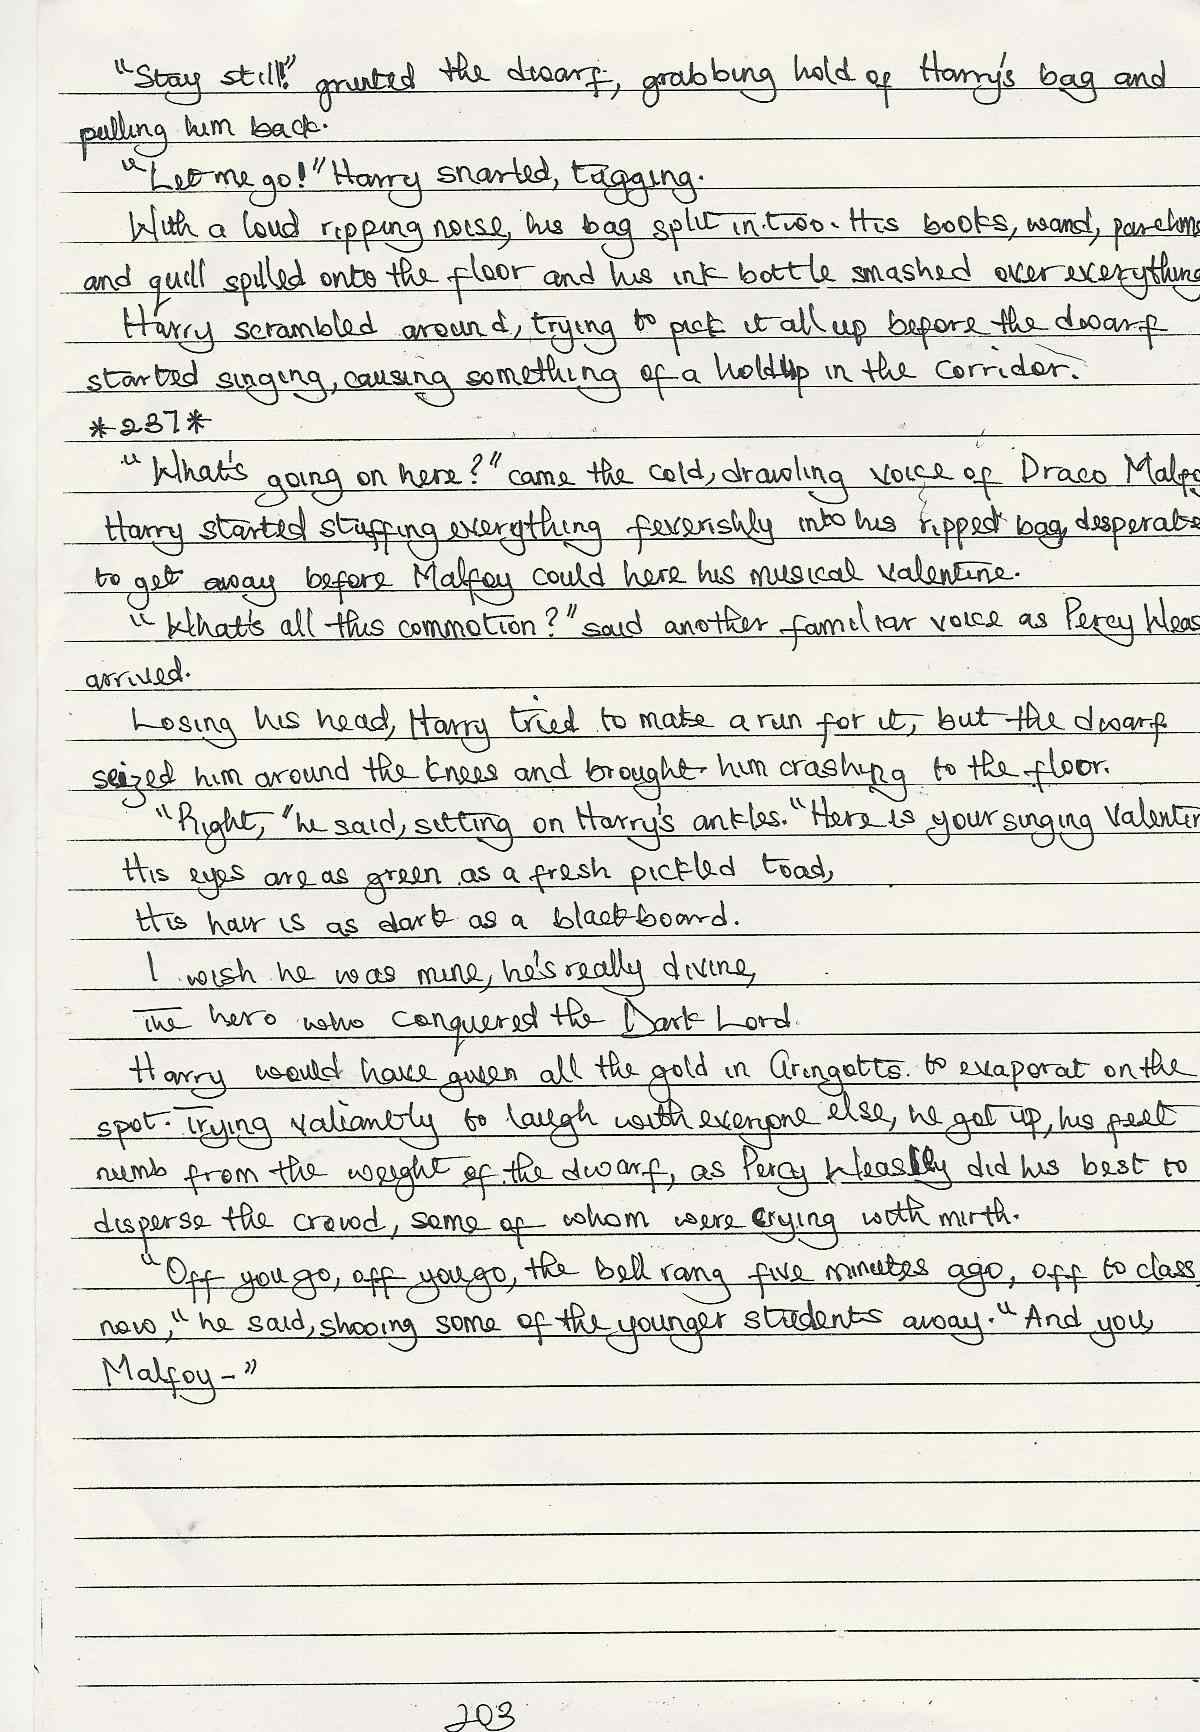 "Stay still!" grunted the dwarf, grabbing hold of Harry's bag and
pulling him back.
"Let me go!" Harry snarled, tagging.
With a loud ripping noise, his bag split in two. His books, wand, parchm
and quill spilled onto the floor and his ink bottle smashed over everything
Harry scrambled around, trying to pick it all up before the dwarf
started singing, causing something of a holdup in the corridor.
*237*
"What's going on here?" came the cold, drawling voice of Draco Malfo
Harry started stuffing everything feverishly into his ripped bag, desperate
to get away before Malfoy could here his musical valentine.
"What's all this commotion?" said another familiar voice as Percy Weas
arrived.
Losing his head, Harry tried to make a run for it, but the dwarf
seized him around the knees and brought him crashing to the floor.
"Right," he said, sitting on Harry's ankles. "Here is your singing Valentin
His eyes are as green as a fresh pickled toad,
His hair is as dark as a blackboard.
I wish he was mine, he's really divine,
The hero who conquered the Dark Lord.
Harry would have given all the gold in Gringotts to evaporat on the
spot. Trying valiantly to laugh with everyone else, he got up, his feet
numb from the weight of the dwarf, as Percy Weaslly did his best to
disperse the crowd, some of whom were crying with mirth.
"Off you go, off you go, the bell rang five minutes ago, off to class
now," he said, shooing some of the younger students away. "And you,
Malfoy-"
203